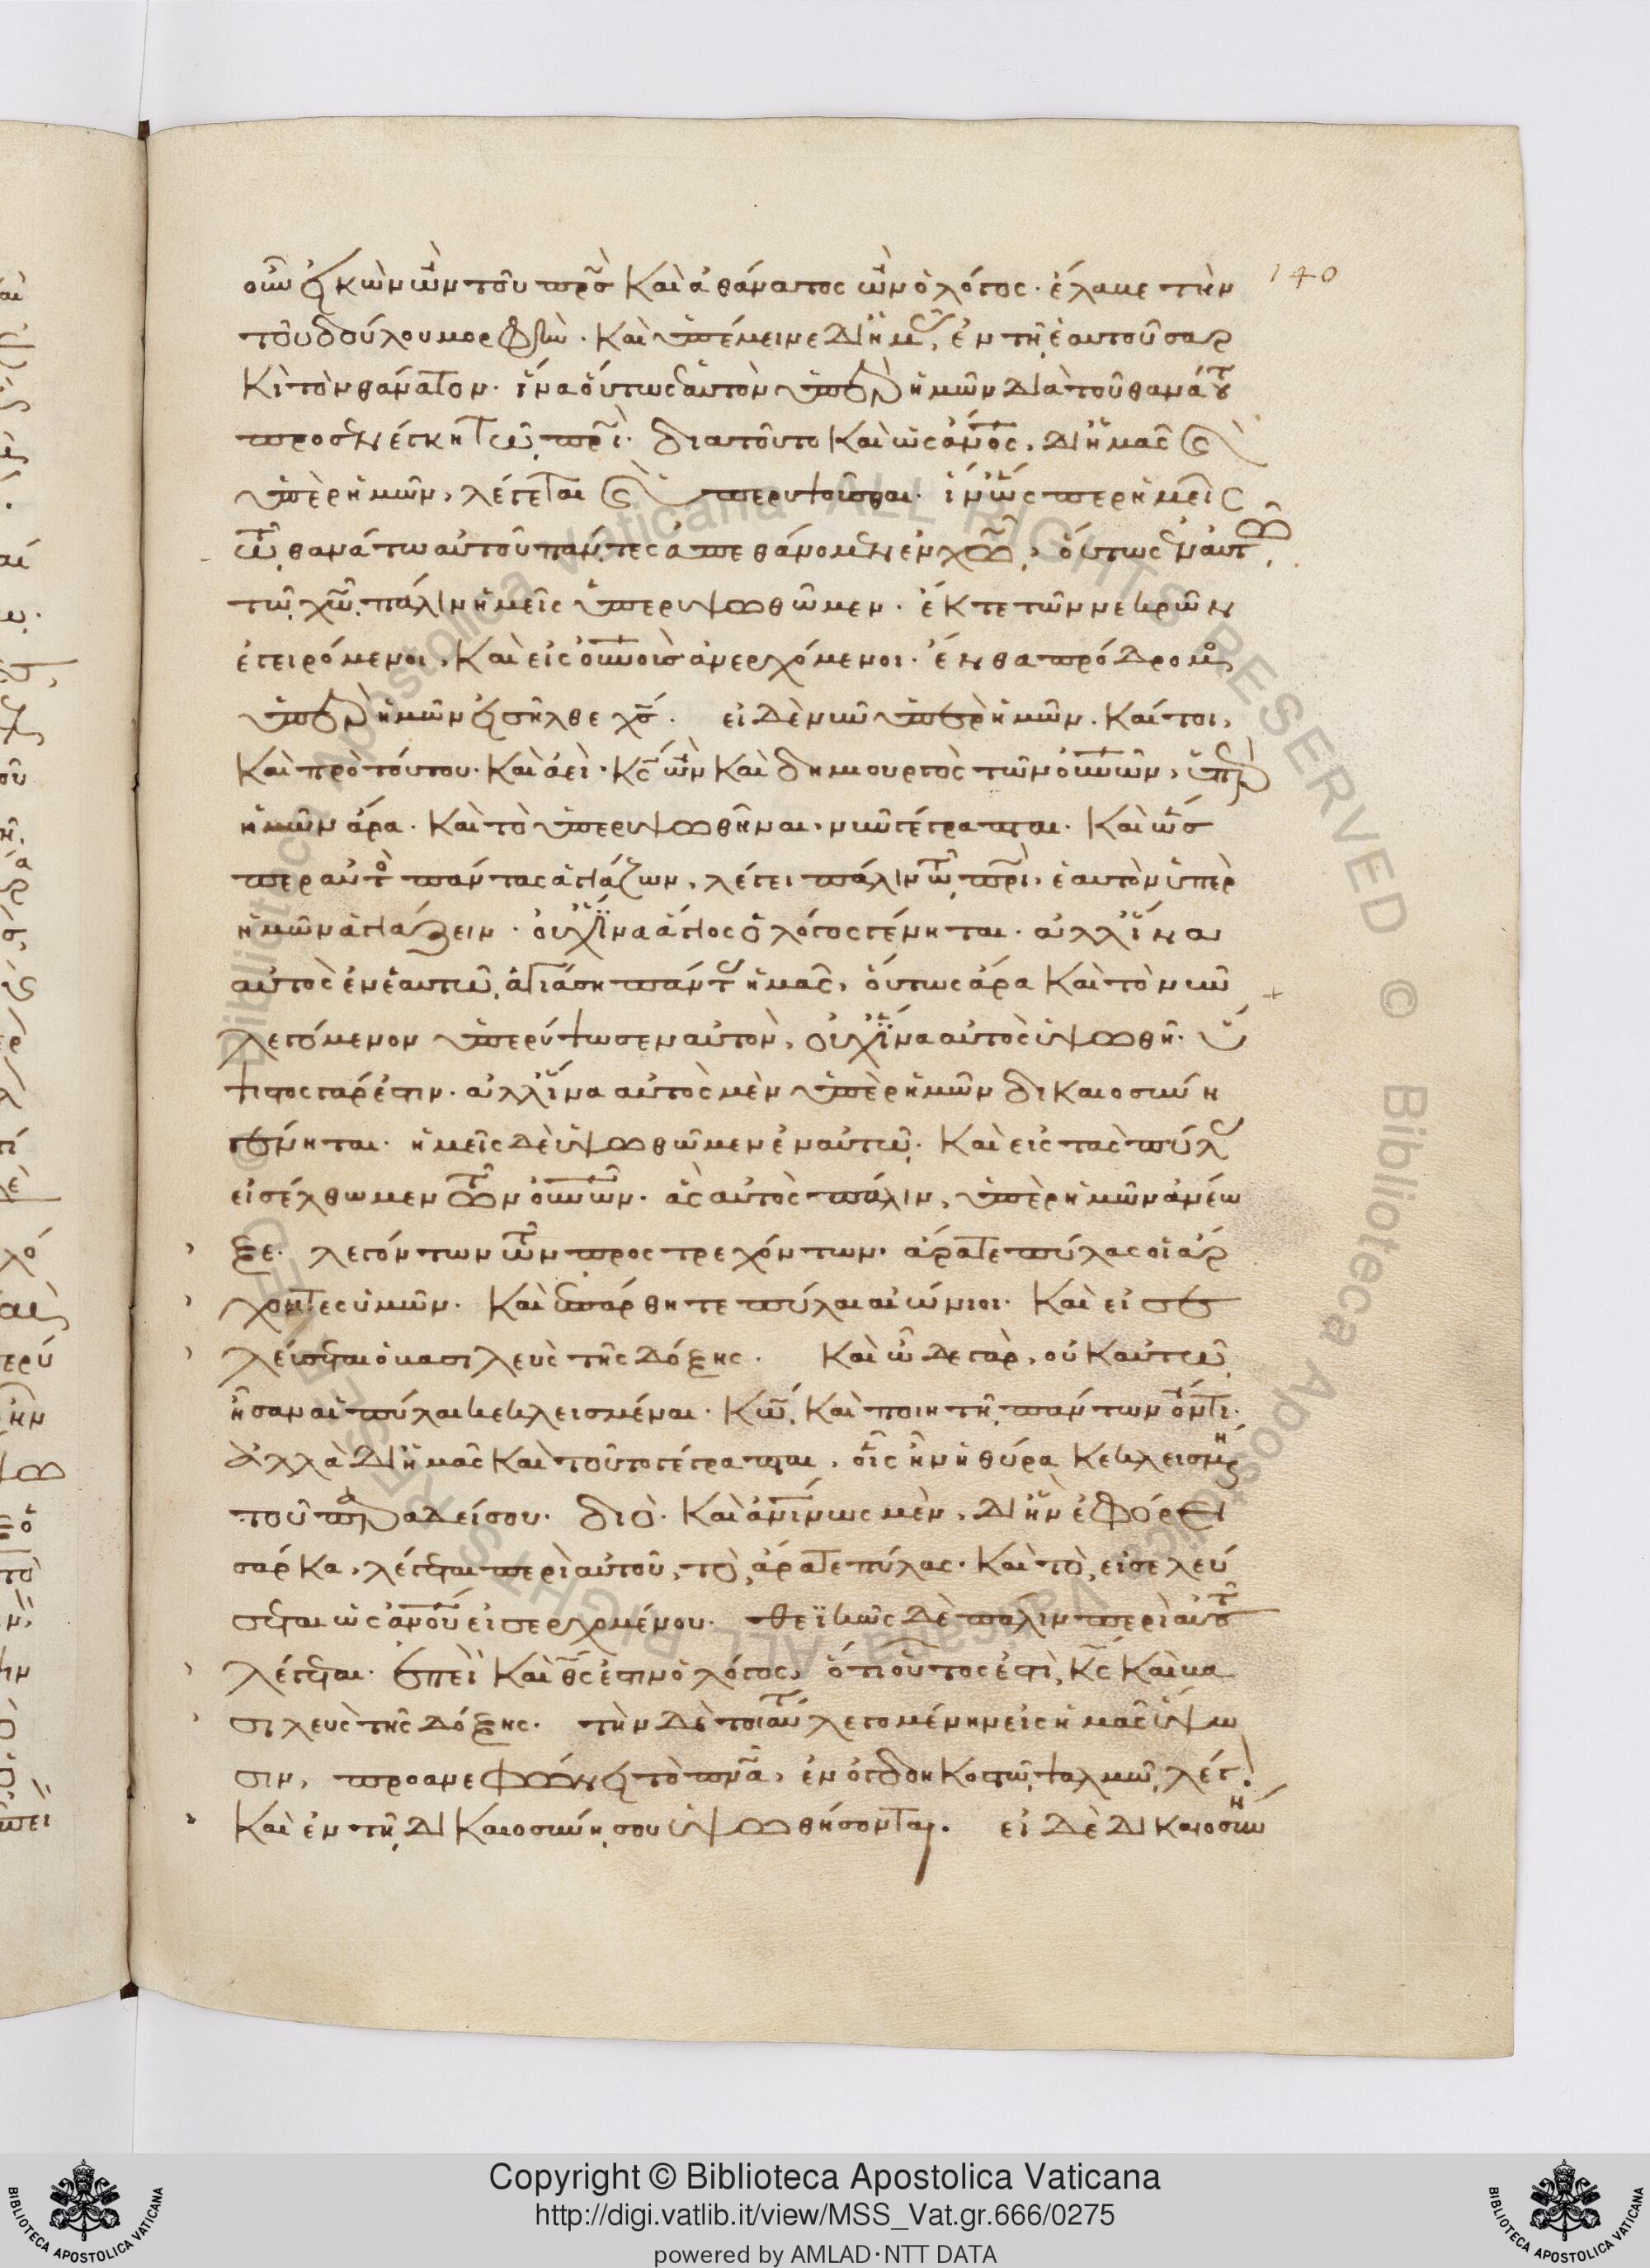 140
οὖν εἰκὼν ὢν τοῦ πρς καὶ ἀθάνατος ὢν ὁ λόγος· ἔλαβε τὴν
τοῦ δούλου μορφὴν· καὶ ὑπέμεινε δι' ἡμᾶς, ἐν τῇ ἑαυτοῦ σαρ
κὶ τὸν θάνατον· ἵνα οὕτως ἑαυτὸν ὑπὲρ ἡμῶν διὰ τοῦ θανάτου
προσενέγκη τῷ πρι· διὰ τοῦτο καὶ ὡς ἄνος, δι' ἡμᾶς καὶ
ὑπὲρ ἡμῶν, λέγεται καὶ ὑπερυψοῦσθαι· ἵν' ὥσπερ ἡμεῖς
τῷ θανάτω αὐτοῦ πάντες ἀπεθάνομεν ἐν χω, οὕτως ἐν αὐτῷ
τῷ χω πάλιν ἡμεῖς ὑπερυψωθῶμεν· ἔκ τε τῶν νεκρῶν
ἐγειρόμενοι, καὶ εἰς οὐνοὺς ἀνερχόμενοι· ἔνθα πρόδρομος
ὑπὲρ ἡμῶν εἰσῆλθε χς· εἰ δὲ νῦν ὑπὲρ ἡμῶν. καίτοι,
καὶ πρὸ τούτου· καὶ ἀεὶ· κς ὢν καὶ δημιουργὸς τῶν οὐνῶν, ὑπὲρ
ἡμῶν ἄρα· καὶ τὸ ὑπερυψωθῆναι, νῦν γέγραπται· καὶ ὥσ
περ αὐτὸς πάντας ἁγιάζων, λέγει πάλιν τῷ πρι, ἑαυτὸν ὑπὲρ
ἡμῶν ἁγιάζειν· οὐχ ἵνα ἅγιος ὁ λόγος γένηται· ἀλλ' ἵνα
αὐτὸς ἐν ἑαυτῷ ἁγιάση πάντας ἡμᾶς, οὕτως ἄρα καὶ τὸ νῦν
λεγόμενον ὑπερύψωσεν αὐτὸν, οὐχ ἵνα αὐτὸς ὑψωθῆ· ὕ
ψιστος γάρ ἐστιν· ἀλλ' ἵνα αὐτὸς μὲν ὑπὲρ ἡμῶν δικαιοσύνη
γένηται· ἡμεῖς δὲ ὑψωθῶμεν ἐν αὐτῷ· καὶ εἰς τὰς πύλας
εἰσέλθωμεν τῶν οὐνῶν· ἃς αὐτὸς πάλιν, ὑπὲρ ἡμῶν ἀνέω
ξε· λεγόντων τῶν προστρεχόντων· ἄρατε πύλας οἱ ἄρ
χοντες ὑμῶν· καὶ ἐπάρθητε πύλαι αἰώνιοι· καὶ εἰσε
λεύσεται ὁ βασιλεὺς τῆς δόξης· καὶ ὧδε γὰρ, οὐκ αὐτῷ
ἦσαν αἱ πύλαι κεκλεισμέναι· κω καὶ ποιητῇ πάντων ὄντι·
ἀλλὰ δι' ἡμᾶς καὶ τοῦτο γέγραπται, οἷς ἦν ἡ θύρα κεκλεισμένη
τοῦ παραδείσου· διὸ· καὶ ἀνίνως μὲν, δι' ἣν ἐφόρει
σάρκα, λέγεται περὶ αὐτοῦ, τὸ, ἄρατε πύλας· καὶ τὸ, εἰσελεύ
σεται ὡς ἀνου εἰσερχομένου· θεϊκῶς δὲ πάλιν περὶ αὐτοῦ
λέγεται· ἐπεὶ καὶ θς ἐστιν ὁ λόγος, ὅτι οὗτος ἐστὶ, κς καὶ βα
σιλεὺς τῆς δόξης· τὴν δὲ τοιαύτην λεγομένην εἰς ἡμᾶς ὕψω
σιν, προανεφώνει τὸ πνα, ἐν ὀγδοηκοστῷ ψαλμῷ λέγον·
καὶ ἐν τῇ δικαιοσύνη σου ὑψωθήσονται. εἰ δὲ δικαιοσύνη
Copyright © Biblioteca Apostolica Vaticana
http://digi.vatlib.it/view/MSS_Vat.gr.666/0275
powered by AMLAD·NTT DATA